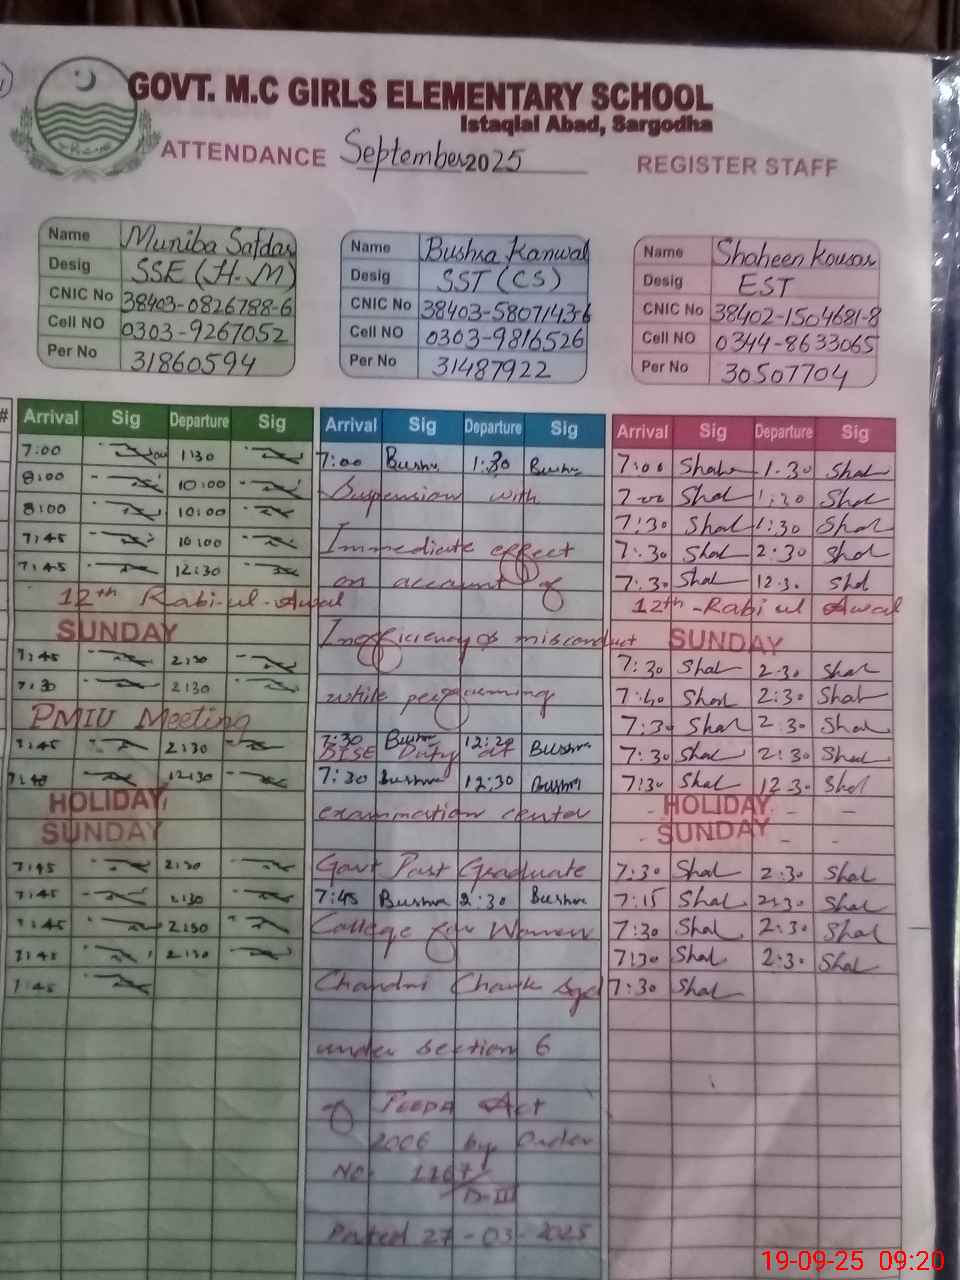 GOVT. M.C GIRLS ELEMENTARY SCHOOL
Istaqlal Abad, Sargodha
ATTENDANCE September 2025 REGISTER STAFF
Name Muniba Safdar
Desig SSE (H.M)
CNIC No 38403-0826788-6
Cell NO 0303-9267052
Per No 31860594
Name Bushra Kanwal
Desig SST (CS)
CNIC No 38403-5807143-6
Cell NO 0303-9816526
Per No 31487922
Name Shaheen Kousar
Desig EST
CNIC No 38402-1504681-8
Cell NO 0344-8633065
Per No 30507704
#
Arrival Sig Departure Sig
7:00 1:30
8:00 10:00
8:00 10:00
7:45 10:00
7:45 12:30
12th Rabi-ul-Awal
SUNDAY
7:45 2:30
7:30 2:30
PMIU Meeting
7:45 2:30
7:40 12:30
HOLIDAY
SUNDAY
7:45 2:30
7:45 2:30
7:45 2:30
7:45 2:30
7:45
Arrival Sig Departure Sig
7:00 Bushra 1:30 Bushra
Suspension with
Immediate effect
on account of
Inefficiency & misconduct
while performing
7:30 Bushra 12:30 Bushra
BISE Duty at
7:30 Bushra 12:30 Bushra
examination center
Govt Post Graduate
7:45 Bushra 2:30 Bushra
College for Women
Chandni Chowk Sgd
under section 6
of PEEDA Act
2006 by Order
No.
D-III
Dated 27-03-2025
Arrival Sig Departure Sig
7:00 Shal 1:30 Shal
7:00 Shal 1:30 Shal
7:30 Shal 1:30 Shal
7:30 Shal 2:30 Shal
7:30 Shal 12:30 Shal
12th-Rabi ul Awal
SUNDAY
7:30 Shal 2:30 Shal
7:40 Shal 2:30 Shal
7:30 Shal 2:30 Shal
7:30 Shal 2:30 Shal
7:30 Shal 12:30 Shal
- HOLIDAY - -
- SUNDAY - -
7:30 Shal 2:30 Shal
7:15 Shal 2:30 Shal
7:30 Shal 2:30 Shal
7:30 Shal 2:30 Shal
7:30 Shal
19-09-25 09:20